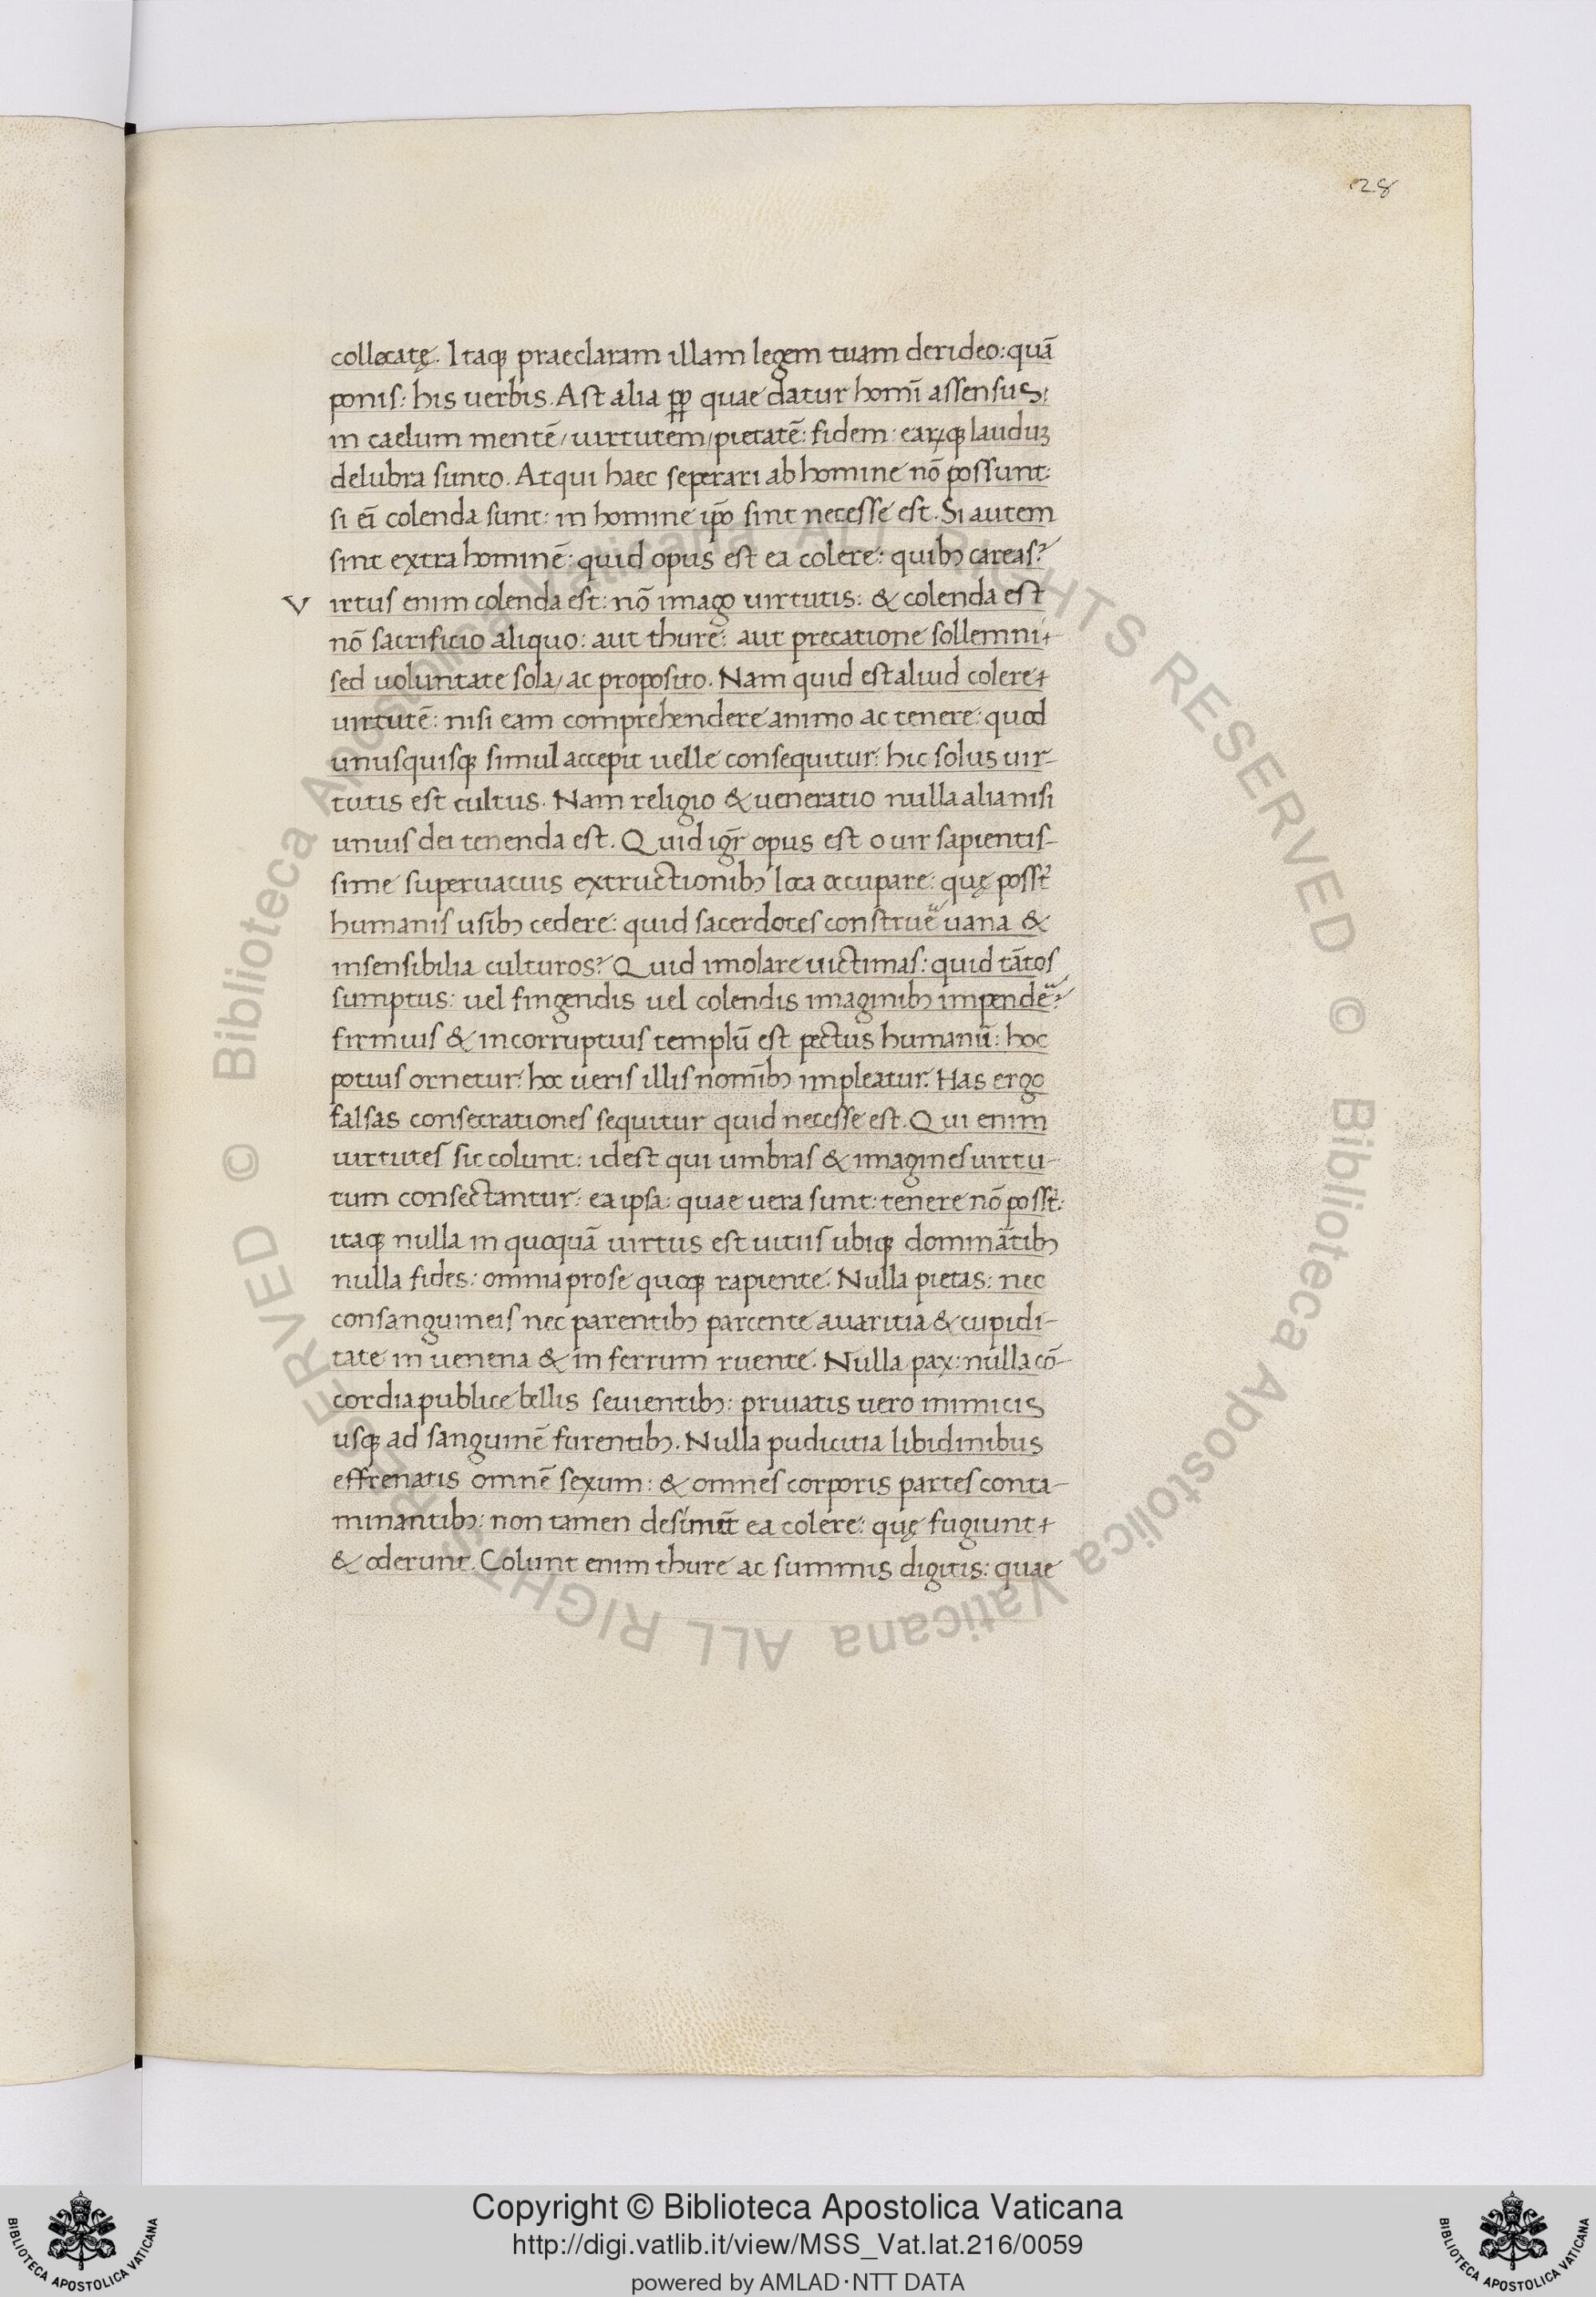 28
collocatę. Itaq; praeclaram illam legem tuam derideo: quā
ponis: his uerbis. Ast alia ꝓp quae datur homī assensus:
in caelum mentē/ uirtutem/ pietatē: fidem: earꝝq; laudūꝫ
delubra sunto. Atqui haec seperari ab homine nō possunt:
si eī colenda sunt: in homine ip̄o sint necesse est. Si autem
sint extra hominē: quid opus est ea colere: quibꝰ careas?
Virtus enim colenda est: nō imago uirtutis: & colenda est
nō sacrificio aliquo: aut thure: aut precatione sollemni+
sed uoluntate sola/ ac proposito. Nam quid est aliud colere+
uirtutē: nisi eam comprehendere animo ac tenere: quod
unusquisq; simul accepit uelle consequitur: hic solus uir-
tutis est cultus. Nam religio & ueneratio nulla alia nisi
unius dei tenenda est. Quid igr̄ opus est o uir sapientis-
sime superuacuis extructionibꝰ loca occupare: quę posst̄
humanis usibꝰ cedere: quid sacerdotes construē uana &
insensibilia culturos? Quid imolare uictimas: quid tātos
sumptus: uel fingendis uel colendis imaginibꝰ impendē?
firmius & incorruptius templū est pectus humanū: hoc
potius ornetur: hoc ueris illis nomībꝰ impleatur. Has ergo
falsas consecrationes sequitur quid necesse est. Qui enim
uirtutes sic colunt: id est qui umbras & imagines uirtu-
tum consectantur: ea ipsa: quae uera sunt: tenere nō posst̄:
itaq; nulla in quoquā uirtus est uitiis ubiq; dominātibꝰ
nulla fides: omnia pro se quoq; rapiente. Nulla pietas: nec
consanguineis nec parentibꝰ parcente auaritia & cupidi-
tate in uenena & in ferrum ruente. Nulla pax: nulla cō-
cordia publice bellis seuientibꝰ: priuatis uero inimicis
usq; ad sanguinē furentibꝰ. Nulla pudicitia libidinibus
effrenatis omnē sexum: & omnes corporis partes conta-
minantibꝰ: non tamen desinūt ea colere: quę fugiunt+
& oderunt. Colunt enim thure ac summis digitis: quae
© Biblioteca Apostolica Vaticana ALL RIGHTS RESERVED
© Biblioteca Apostolica Vaticana ALL RIGHTS RESERVED
Copyright © Biblioteca Apostolica Vaticana
http://digi.vatlib.it/view/MSS_Vat.lat.216/0059
powered by AMLAD·NTT DATA
BIBLIOTECA APOSTOLICA VATICANA
BIBLIOTECA APOSTOLICA VATICANA